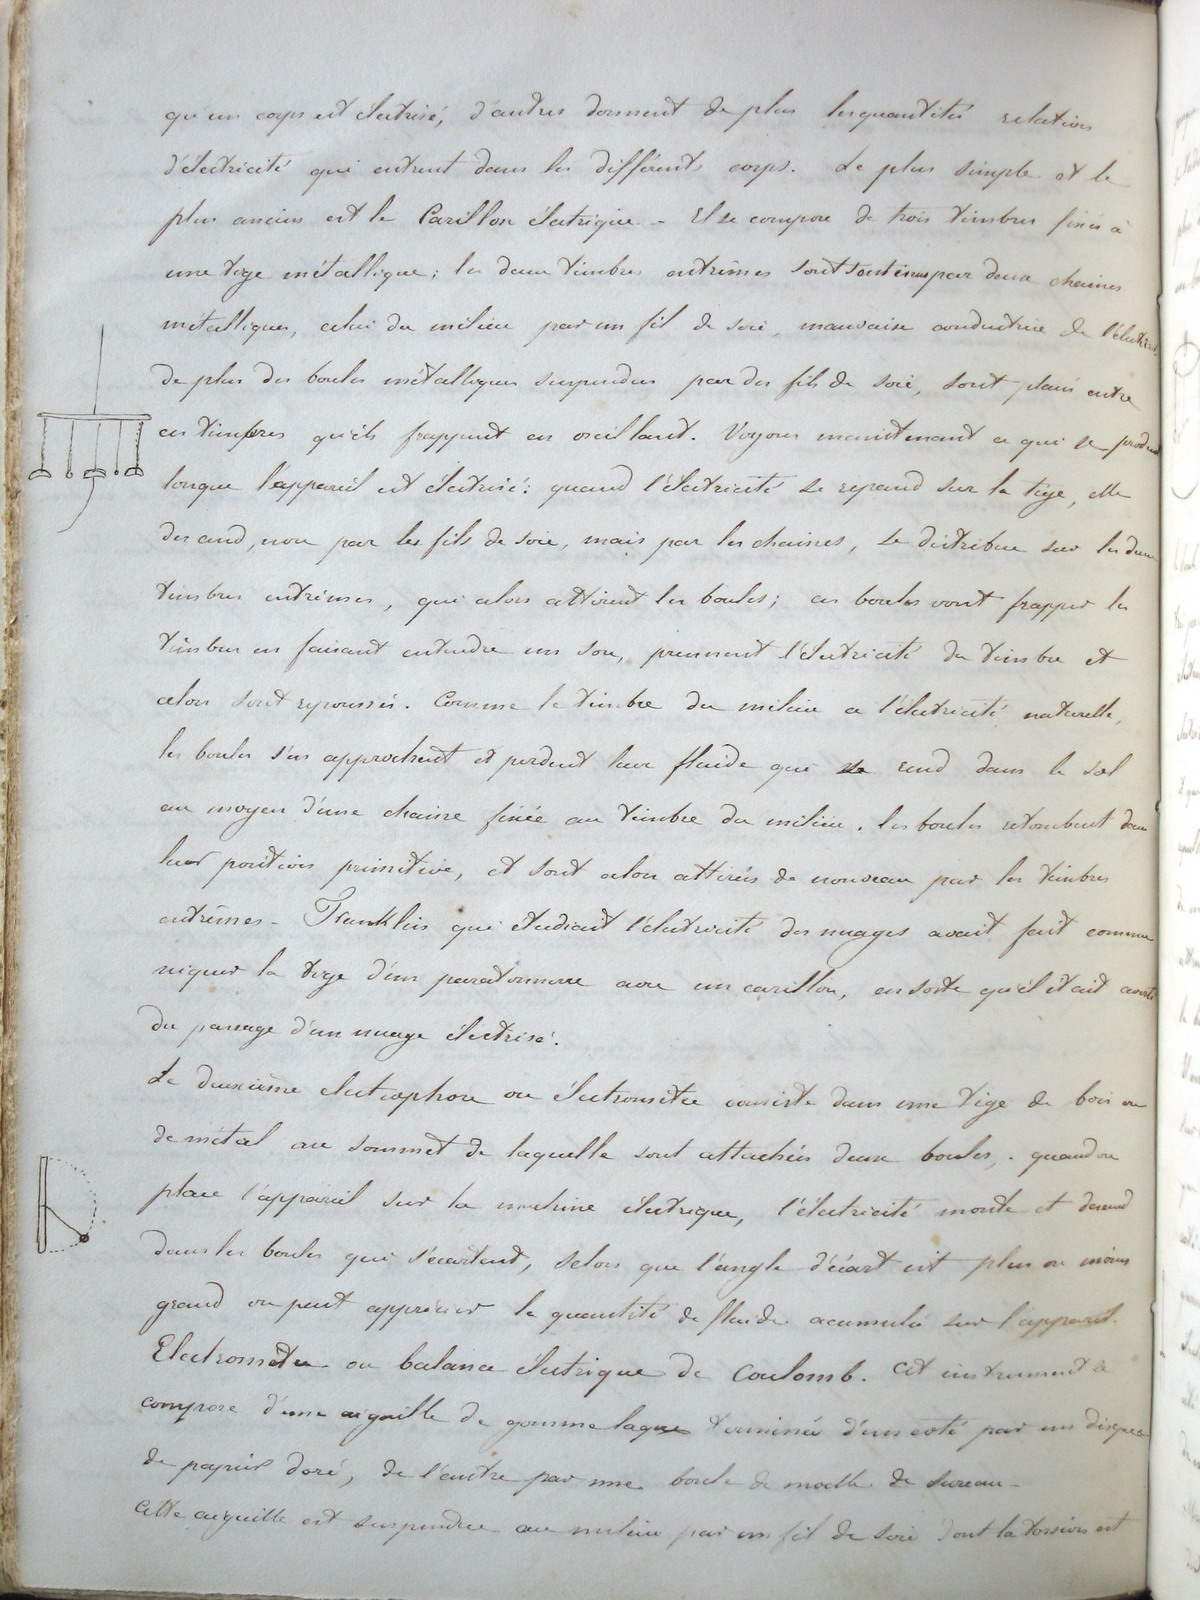 qu'un corps est électrisé, d'autres donnent de plus les quantités relatives
d'électricité qui entrent dans les différents corps. Le plus simple et le
plus ancien est le Carillon électrique - Il se compose de trois timbres fixés à
une tige métallique; les deux timbres extrêmes sont soutenus par deux chaines
métalliques, celui du milieu par un fil de soie, mauvaise conductrice de
de plus des boules métalliques suspendues par des fils de soie, sont placés entre
ces timbres qu'ils frappent en oscillant. Voyons maintenant ce qui se
lorsque l'appareil est électrisé: quand l'électricité se repand sur la tige, elle
descend, non par les fils de soie, mais par les chaines, se distribue sur les deux
timbres extrêmes, qui alors attirent les boules; ces boules vont frapper les
timbres en faisant entendre un son, prennent l'électricité du timbre et
alors sont repoussés. Comme le timbre du milieu a l'électricité naturelle,
les boules s'en approchent et perdent leur fluide qui se rend dans le sol
au moyen d'une chaine fixée au timbre du milieu. les boules retombent dans
leur position primitive, et sont alors attirées de nouveau par les timbres
extrêmes - Franklin qui étudiait l'électricité des nuages avait fait commu
niquer la tige d'un paratonnerre avec un carillon, en sorte qu'il était averti
du passage d'un nuage électrisé.
Le deuxième electrophore ou électromètre consiste dans une tige de bois ou
de métal au sommet de laquelle sont attachées deux boules, . quand on
place l'appareil sur la machine électrique, l'électricité monte et descend
dans les boules qui s'écartent, selon que l'angle d'écart est plus ou moins
grand on peut apprécier la quantité de fluide acumulée sur l'appareil.
Electromètre ou balance électrique de Coulomb. Cet instrument se
compose d'une aiguille de gomme laque terminée d'un coté par un disque
de papier doré, de l'autre par une boule de moelle de sureau -
Cette aiguille est suspendue au milieu par un fil de soie dont la torsion est